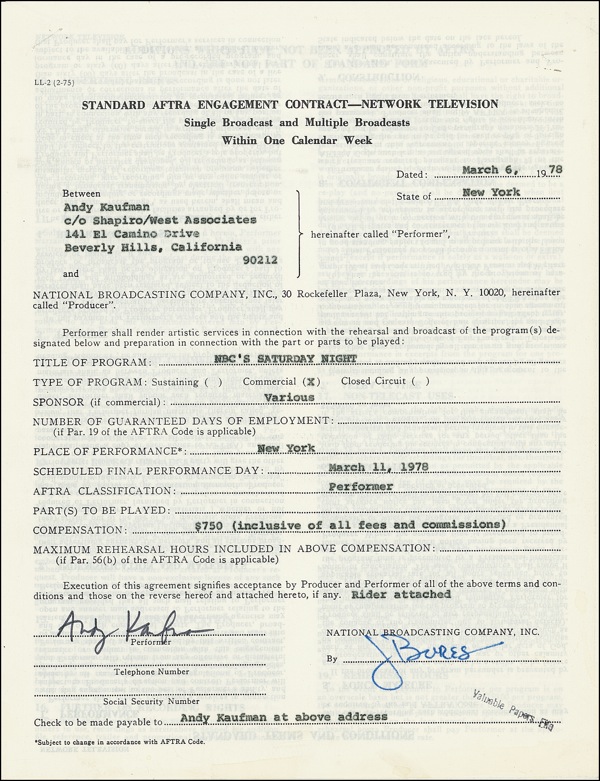 LL-2 (2-75)
STANDARD AFTRA ENGAGEMENT CONTRACT—NETWORK TELEVISION
Single Broadcast and Multiple Broadcasts
Within One Calendar Week
Dated: March 6, 1978
State of New York
Between
Andy Kaufman
c/o Shapiro/West Associates
141 El Camino Drive
Beverly Hills, California
90212
hereinafter called "Performer",
and
NATIONAL BROADCASTING COMPANY, INC., 30 Rockefeller Plaza, New York, N. Y. 10020, hereinafter
called "Producer".
Performer shall render artistic services in connection with the rehearsal and broadcast of the program(s) de-
signated below and preparation in connection with the part or parts to be played:
TITLE OF PROGRAM: NBC'S SATURDAY NIGHT
TYPE OF PROGRAM: Sustaining ( ) Commercial (X) Closed Circuit ( )
SPONSOR (if commercial): Various
NUMBER OF GUARANTEED DAYS OF EMPLOYMENT:
(if Par. 19 of the AFTRA Code is applicable)
PLACE OF PERFORMANCE*: New York
SCHEDULED FINAL PERFORMANCE DAY: March 11, 1978
AFTRA CLASSIFICATION: Performer
PART(S) TO BE PLAYED:
COMPENSATION: $750 (inclusive of all fees and commissions)
MAXIMUM REHEARSAL HOURS INCLUDED IN ABOVE COMPENSATION:
(if Par. 56(b) of the AFTRA Code is applicable)
Execution of this agreement signifies acceptance by Producer and Performer of all of the above terms and con-
ditions and those on the reverse hereof and attached hereto, if any. Rider attached
Andy Kaufman
Performer
NATIONAL BROADCASTING COMPANY, INC.
By
Telephone Number
Social Security Number
Valuable Papers
Check to be made payable to Andy Kaufman at above address
*Subject to change in accordance with AFTRA Code.